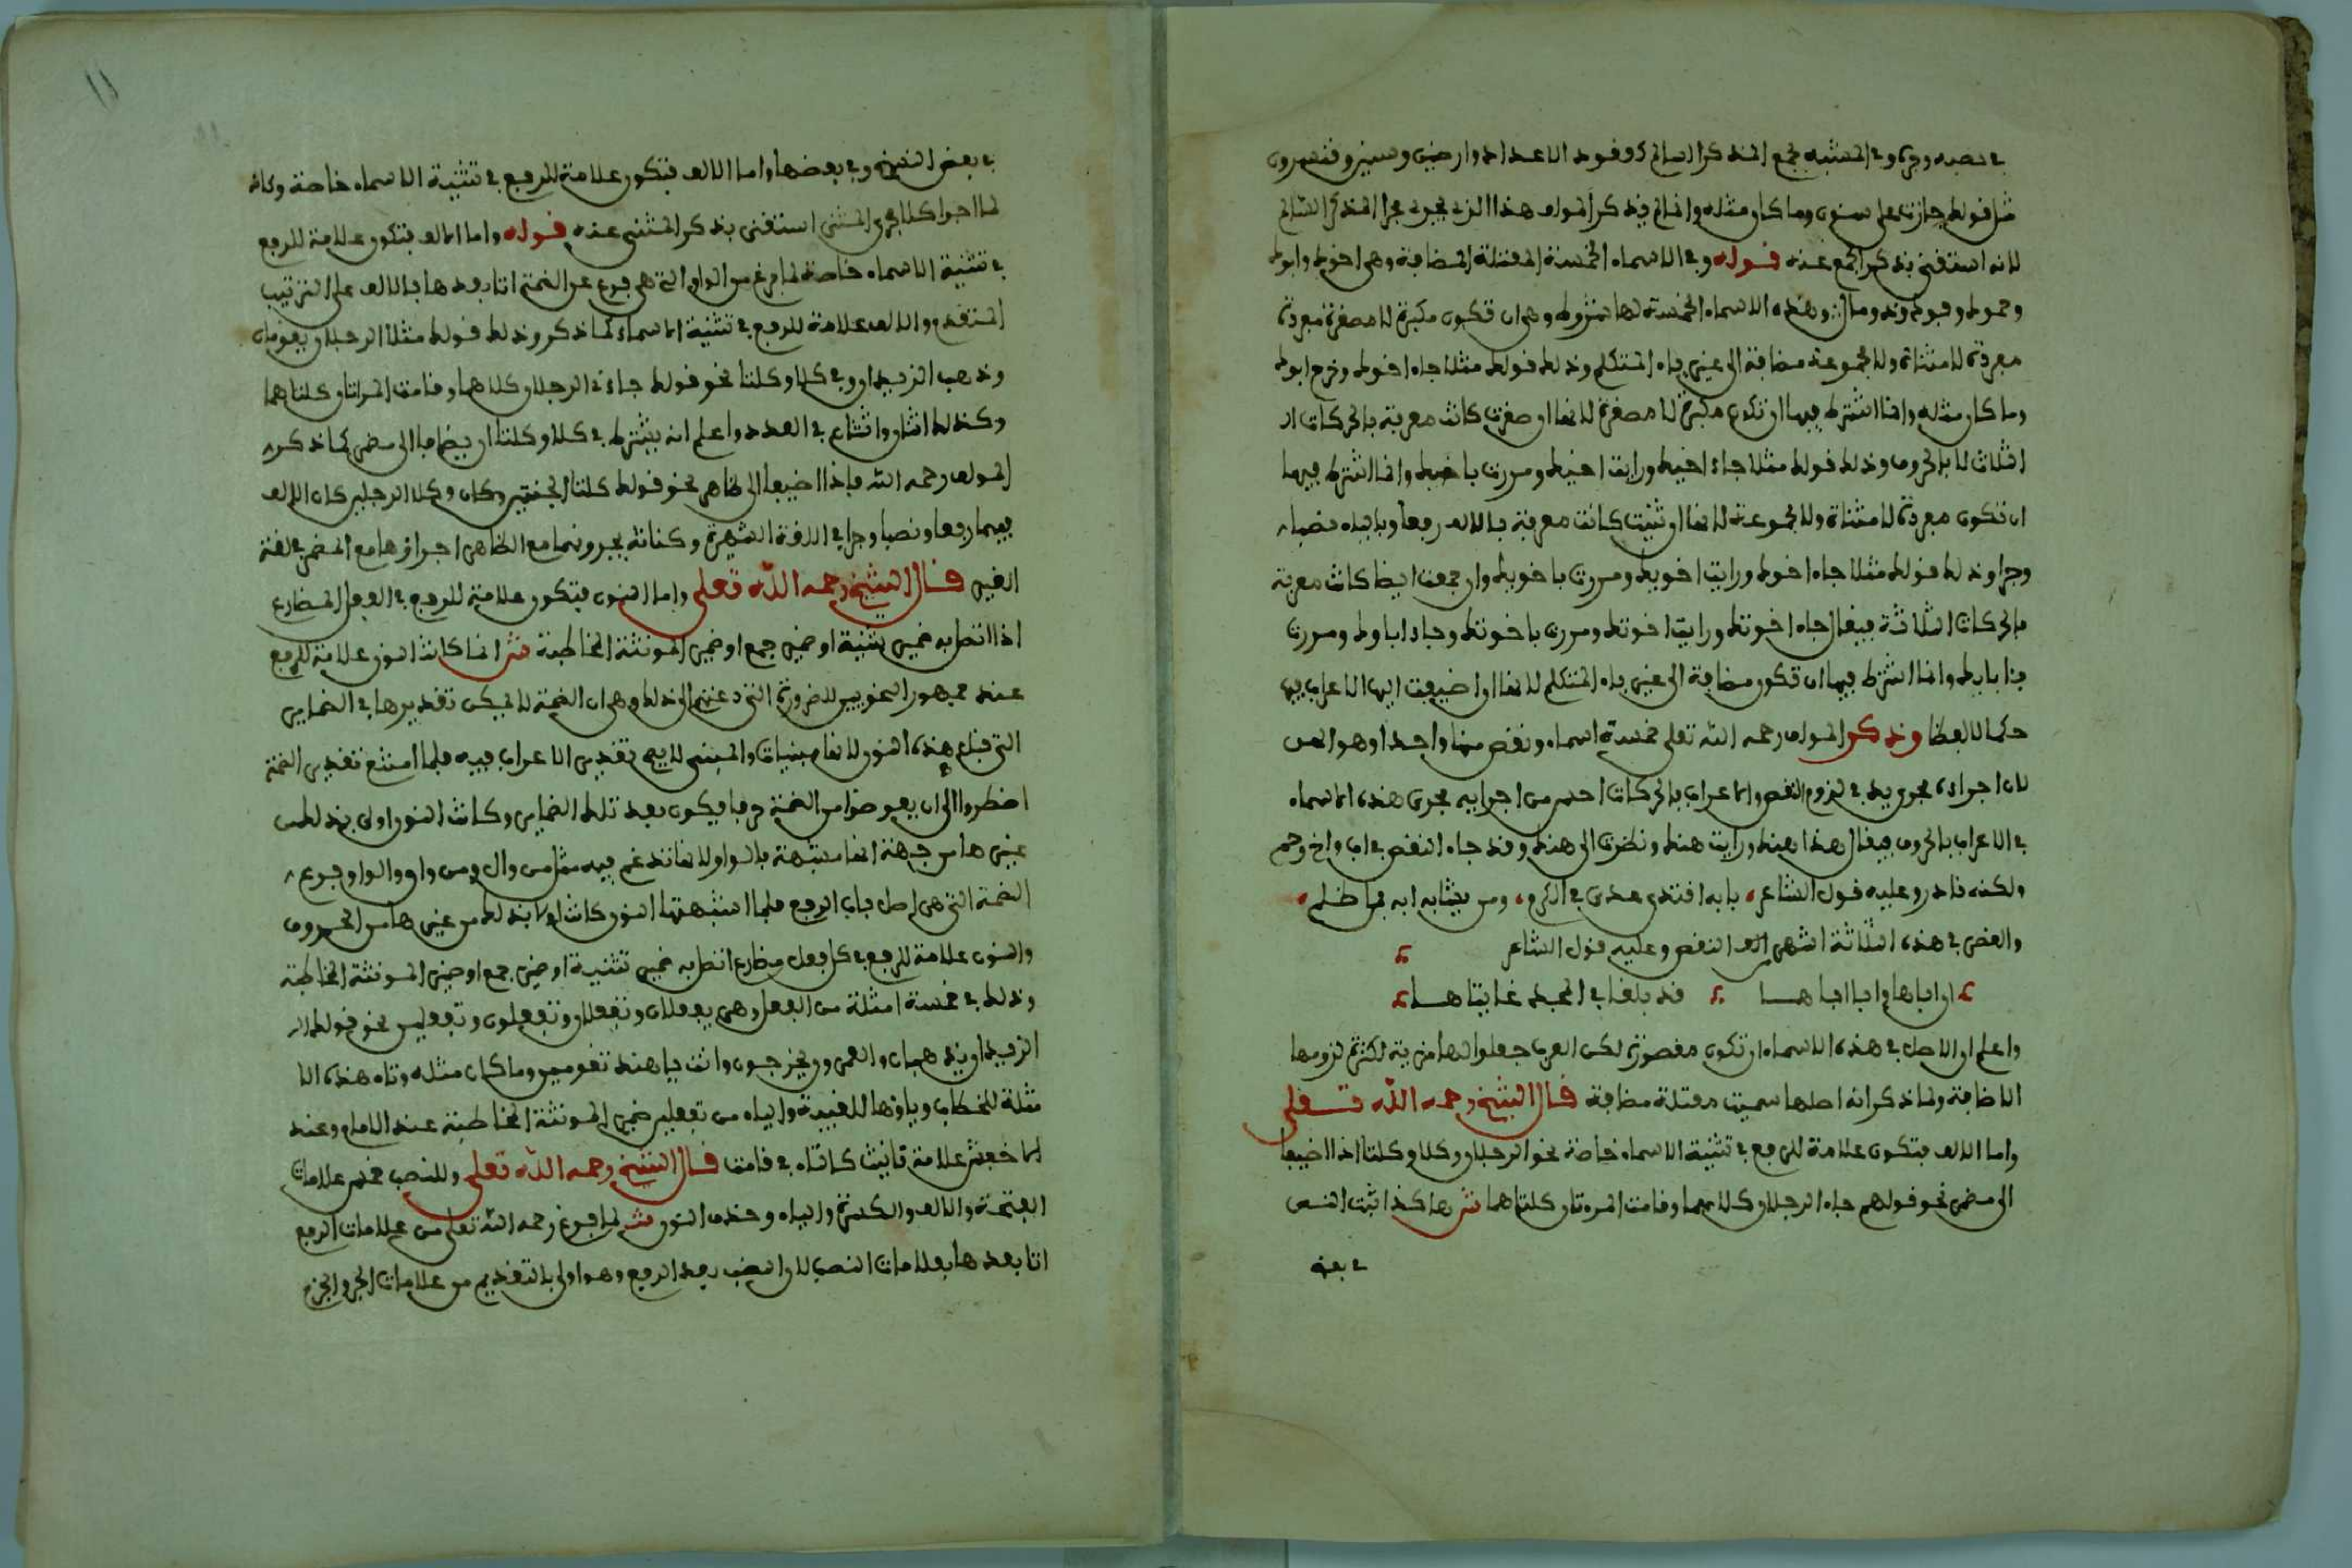 في نصبه وجره وفي المشبه بجمع المذكر السالم كقولك الاعداد وارضين وسنين وتقسرون
مثل قولك جازت على سنون وما كان مثله وانما لم يذكر المولف هذا الذي يجري مجرا المذكر السالم
لانه استغنى بذكر الجمع عنه قوله وفي الاسماء الخمسة المعتلة المضافة وهي اخوك وابوك
وحموك وفوك وذو مال وهذه الاسماء الخمسة لها شروط وهي ان تكون مكبرة لا مصغرة مفردة
مفردة لا مثناة ولا مجموعة مضافة الى غير ياء المتكلم وذلك قولك مثلا جاء اخوك وخرج ابوك
وما كان مثله وانما اشترط فيها ان تكون مكبرة لا مصغرة لانها ان صغرت كانت معربة بالحركات ال
الثلاث لا بالحروف وذلك قولك مثلا جاء اخيك ورايت اخيك ومررت باخيك وانما اشترط فيها
ان تكون مفردة لا مثناة ولا مجموعة لانها ان ثنيت كانت معربة بالالف رفعا وبالياء نصبا
وجرا وذلك قولك مثلا جاء اخوك ورايت اخويك ومررت باخويك وان جمعت ايضا كانت معربة
بالحركات الثلاثة فيقال جاء اخوتك ورايت اخوتك ومررت باخوتك وجاء اباوك ومررت
بابايك وانما اشترط فيها ان تكون مضافة الى غير ياء المتكلم لانها اذا اضيفت اليها الاعراب فيها
حكما لا لفظا وذكر المولف رحمه الله تعلى خمسة اسماء ونقص منها واحدا وهو الهن
لان اجراءه مجرى يد في لزوم النقص والاعراب بالحركات احسن من اجرايه مجرى هذه الاسماء
في الاعراب بالحروف فيقال هذا هنك ورايت هنك ونظرت الى هنك وقد جاء النقص في اب واخ وحم
ولكنه نادر وعليه قول الشاعر بابه اقتدى عدي في الكرم ومن يشابه ابه فما ظلم
والقصر في هذه الثلاثة اشهر من النقص وعليه قول الشاعر
ان اباها وابا اباها قد بلغا في المجد غايتاها
واعلم ان الاصل في هذه الاسماء ان تكون مقصورة لكن العرب جعلوا لها مزية لكثرة لزومها
الاضافة ولما ذكر انه اصلها سميت معتلة مضافة قال الشيخ رحمه الله تعلى
واما الالف فتكون علامة للرفع في تثنية الاسماء خاصة نحو الرجلان وكلا وكلتا اذا اضيفا
الى مضمر نحو قولهم جاء الرجلان كلاهما وقامت المرءتان كلتاهما ش هاكذا ثبت النص
في بعض
في بعض النسخ وفي بعضها واما الالف فتكون علامة للرفع في تثنية الاسماء خاصة وكانه
لما اجرا كلا مجرى المثنى استغنى بذكر المثنى عنه قوله واما الالف فتكون علامة للرفع
في تثنية الاسماء خاصة لما فرغ من الواو التي هي فرع عن الضمة اتا بعدها بالالف على الترتيب
المتقدم والالف علامة للرفع في تثنية الاسماء كما ذكر وذلك قولك مثلا الرجلان يقومان
وذهب الزيدان وفي كلا وكلتا نحو قولك جاءني الرجلان كلاهما وقامت المراتان كلتاهما
وكذلك اثنان واثنتان في العدد واعلم انه يشترط في كلا وكلتا ان يضافا الى مضمر كما ذكره
المولف رحمه الله فاذا اضيفا الى ظاهر نحو قولك كلتا الجنتين وكان وكلا الرجلين كان الالف
فيهما رفعا ونصبا وجرا في اللغة الشهيرة وكنانة يجرونهما مع الظاهر اجراءهما مع المضمر في لغة
الغير قال الشيخ رحمه الله تعلى واما النون فتكون علامة للرفع في الفعل المضارع
اذا اتصل به ضمير تثنية او ضمير جمع او ضمير المونثة المخاطبة ش انما كانت النون علامة للرفع
عند جمهور النحويين للضرورة التي دعتهم الى ذلك وهي ان الضمة لا يمكن تقديرها في الضماير
التي قبل هذه النون لانها مبنيات والمبني لا يصح تقدير الاعراب فيه فلما امتنع تقدير الضمة
اضطروا الى ان يعوضوا من الضمة حرفا يكون بعد تلك الضماير وكانت النون اولى بذلك من
غيرها من جهة انها مشبهة بالواو ولانها تدغم فيه مثل من وال ومن واق والواو فرع
الضمة التي هي اصل باب الرفع فلما اشبهتها النون كانت اولا بذلك من غيرها من الحروف
والنون علامة للرفع في كل فعل مضارع اتصل به ضمير تثنية او ضمير جمع او ضمير المونثة المخاطبة
وذلك في خمسة امثلة من الفعل وهي يفعلان وتفعلان وتفعلون وتفعلين نحو قولك ال
الزيدان يذهبان والعمرون يخرجون وانت يا هند تقومين وما كان مثله وتاء هذه الا
مثلة للخطاب وياؤها للغيبة والياء من تفعلين ضمير المونثة المخاطبة عند الامام وعند
الاخفش علامة تانيث كالتاء في قامت قال الشيخ رحمه الله تعلى وللنصب خمس علامات
الفتحة والالف والكسرة والياء وحذف النون ش لما فرغ رحمه الله تعلى من علامات الرفع
اتا بعدها بعلامات النصب لان النصب بعد الرفع وهو اولى بالتقديم من علامات الجر والجزم